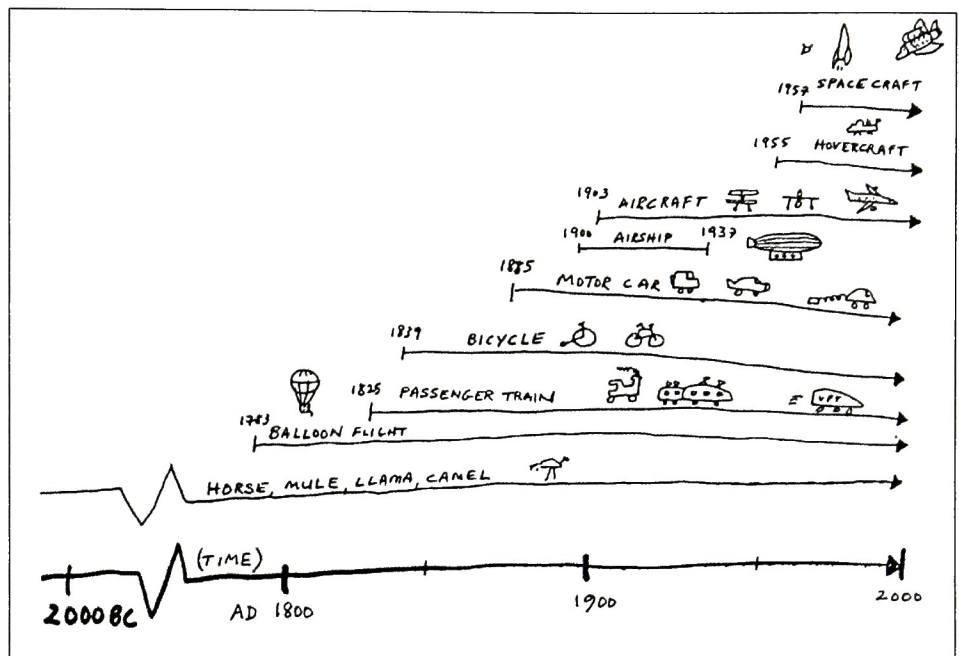 1957 SPACE CRAFT
1955 HOVERCRAFT
1903 AIRCRAFT
1900 AIRSHIP 1937
1885 MOTOR CAR
1839 BICYCLE
1825 PASSENGER TRAIN
1783 BALLOON FLIGHT
HORSE, MULE, LLAMA, CAMEL
(TIME)
2000 BC AD 1800 1900 2000